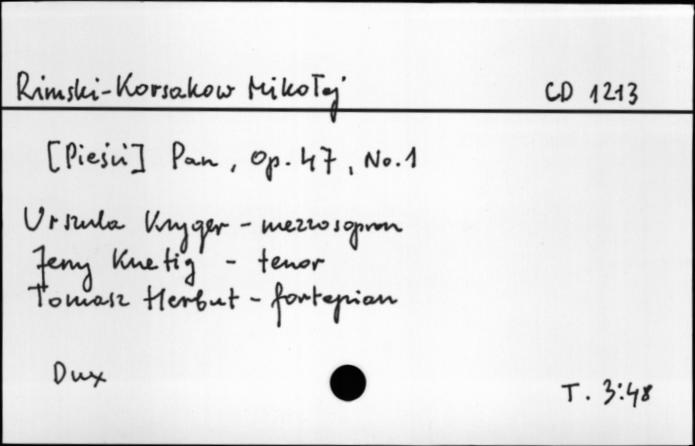 Rimski-Korsakow Mikołaj CD 1213
[Pieśń] Pan, Op. 47, No. 1
Urszula Kryger - mezzosopran
Jerzy Knetig - tenor
Tomasz Herbut - fortepian
Dux
T. 3:48